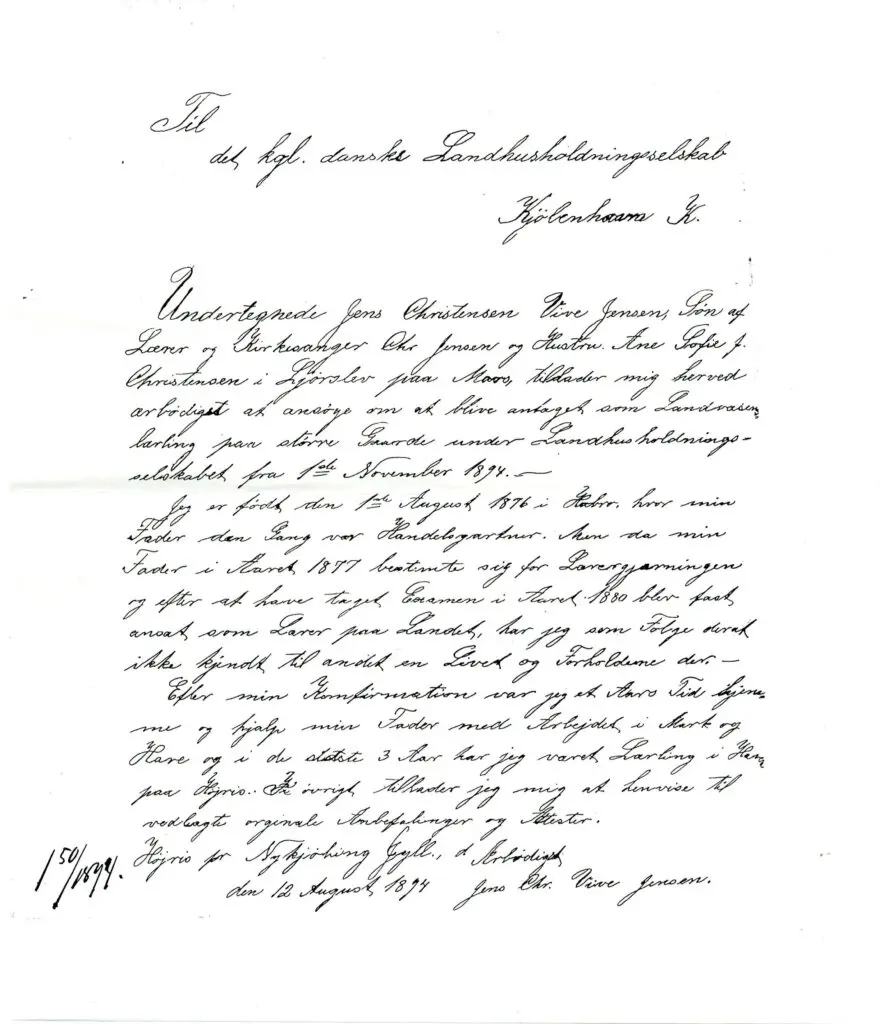 Til
det kgl. danske Landhusholdningsselskab
Kjöbenhavn K.
Undertegnede Jens Christensen Vive Jensen, Søn af
Lærer og Kirkesanger Chr Jensen og Hustru Ane Sofie f.
Christensen i Ljörslev paa Mors, tillader mig herved
ærbödigst at ansöge om at blive antaget som Landvæsen-
lærling paa större Gaarde under Landhusholdnings-
selskabet fra 1ste November 1894.—
Jeg er födt den 1ste August 1876 i Hobro, hvor min
Fader den Gang var Handelsgartner. Men da min
Fader i Aaret 1877 bestemte sig for Lærergjerningen
og efter at have taget Examen i Aaret 1880 blev fast
ansat som Lærer paa Landet, har jeg som Fölge deraf
ikke kjendt til andet en Livet og Forholdene der.—
Efter min Konfirmation var jeg et Aars Tid hjem-
me og hjalp min Fader med Arbejdet i Mark og
Have og i de sidste 3 Aar har jeg været Lærling i Have
paa Höjris. övrigt tillader jeg mig at henvise til
vedlagte orginale Anbefalinger og Atester.
Höjris pr Nykjöbing Jyll., d Ærbödigst
den 12 August 1894 Jens Chr. Vive Jensen.
150/1894.